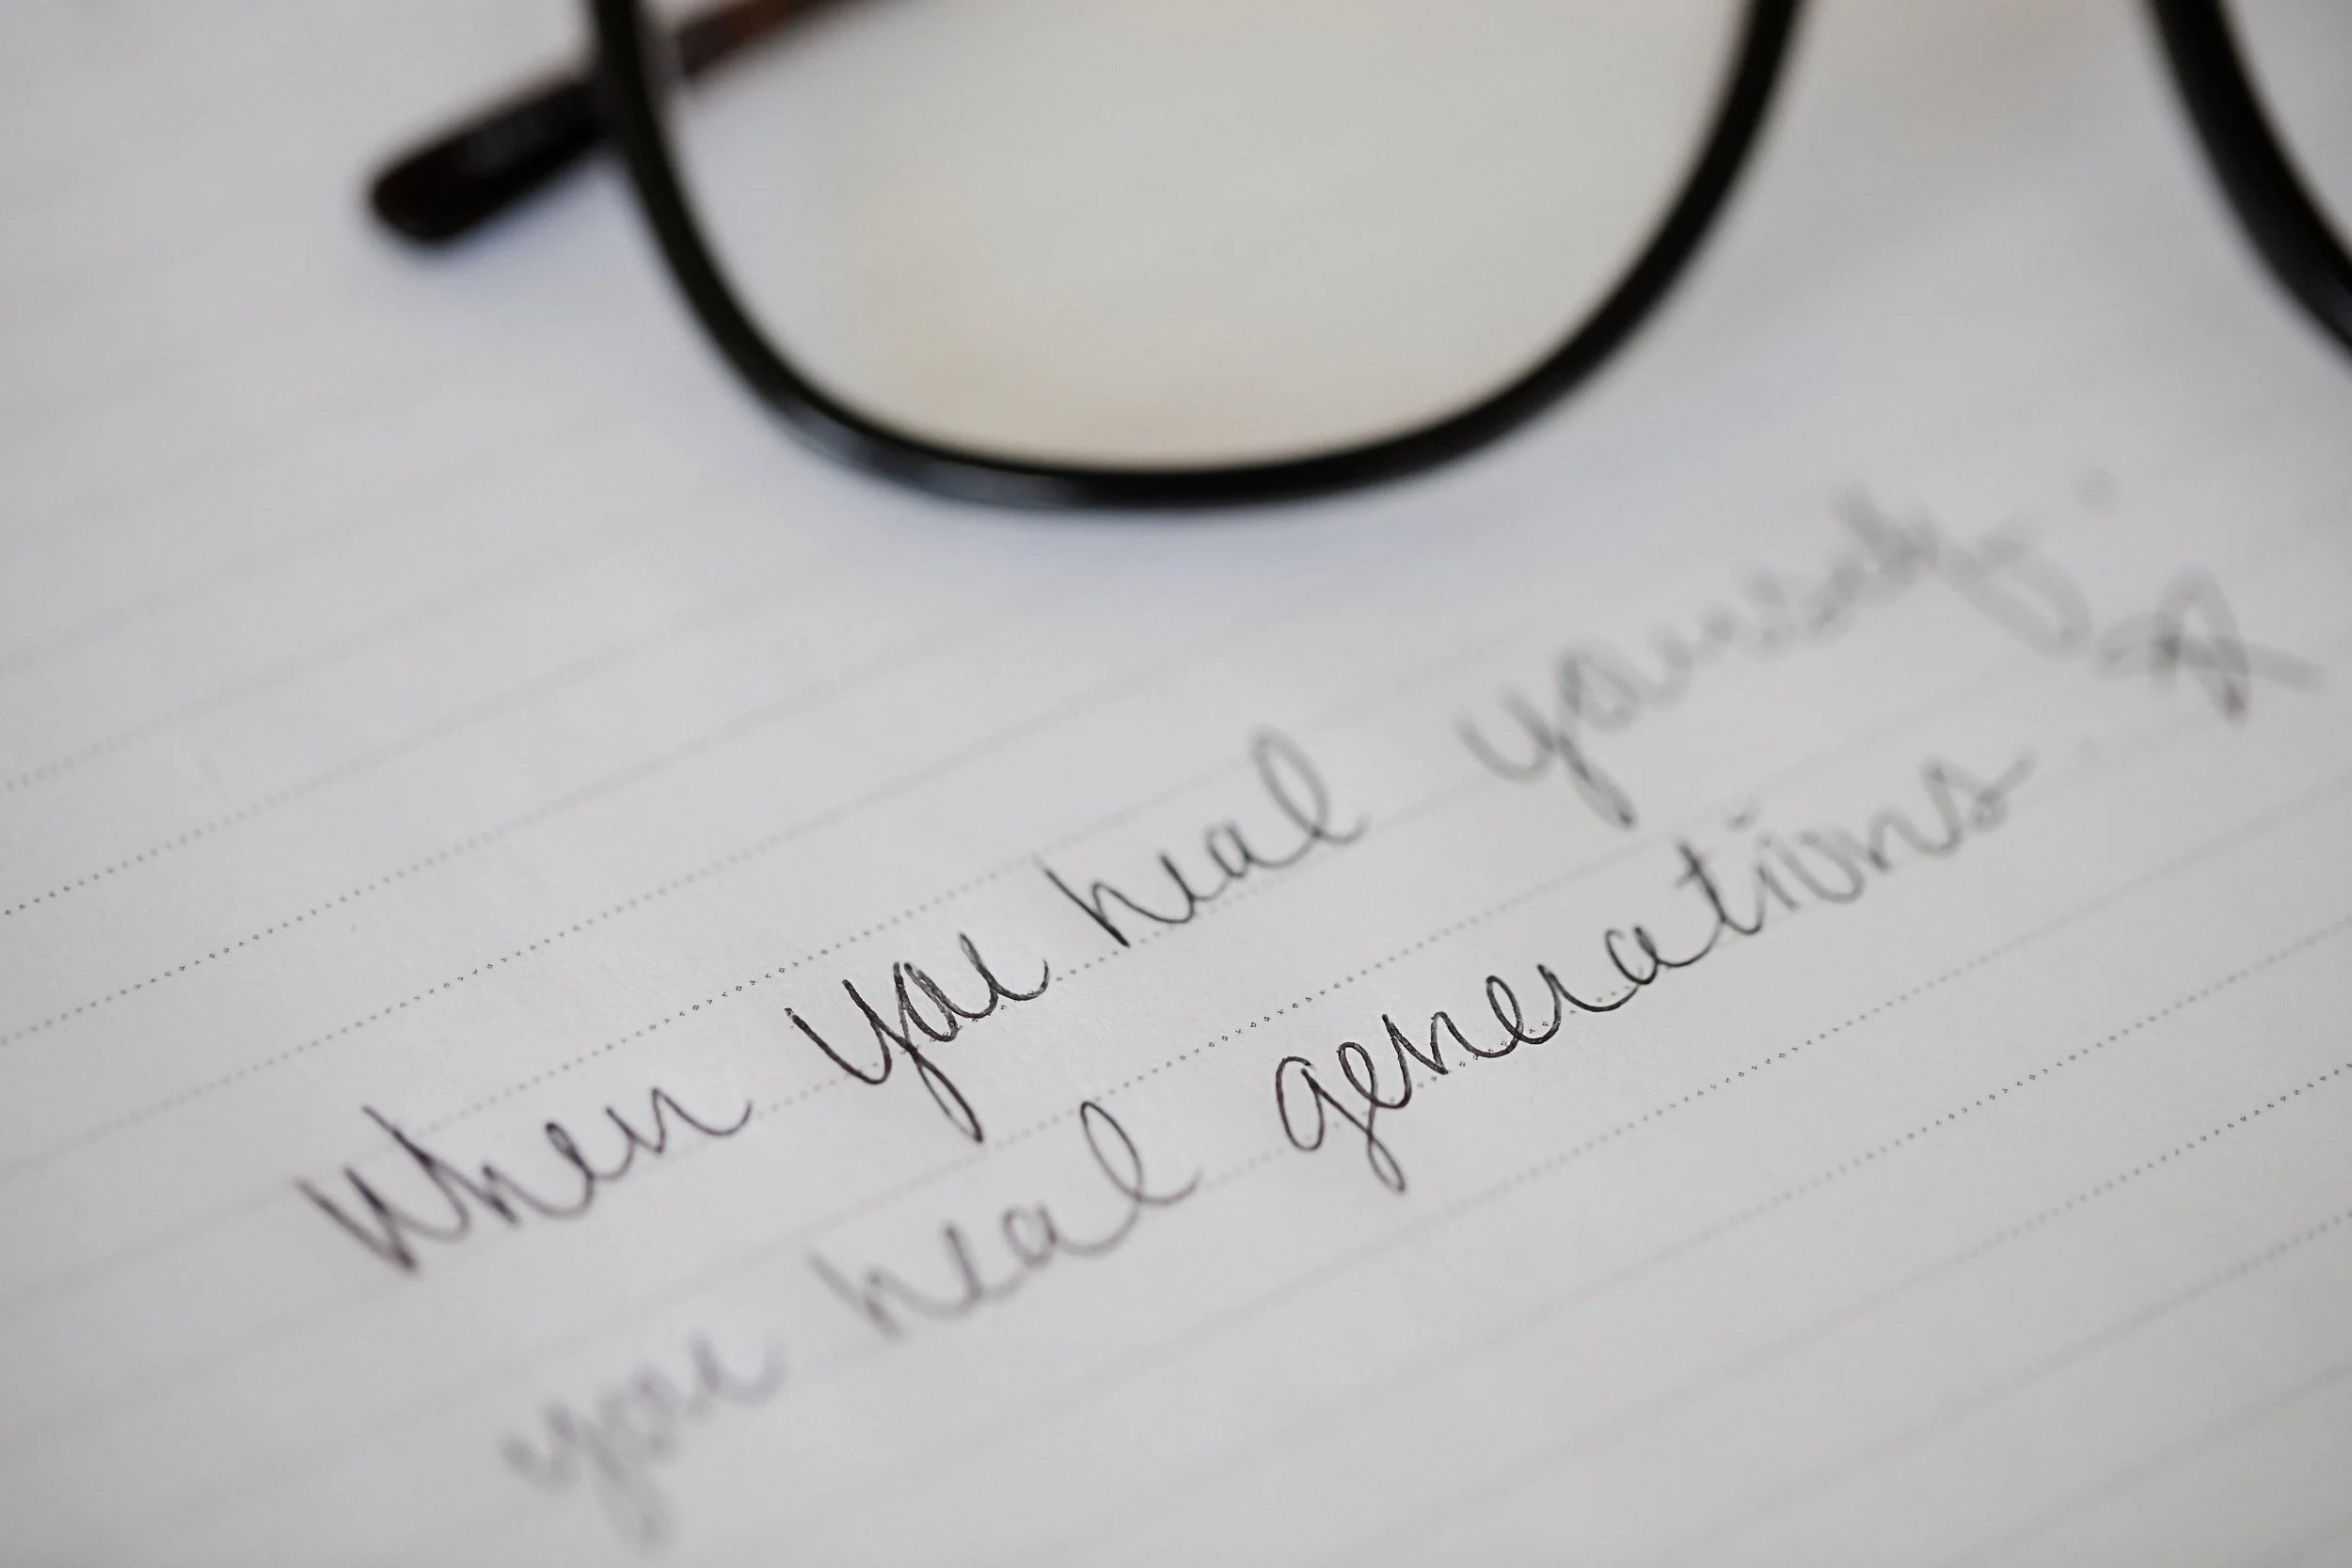 When you heal yourself,
you heal generations